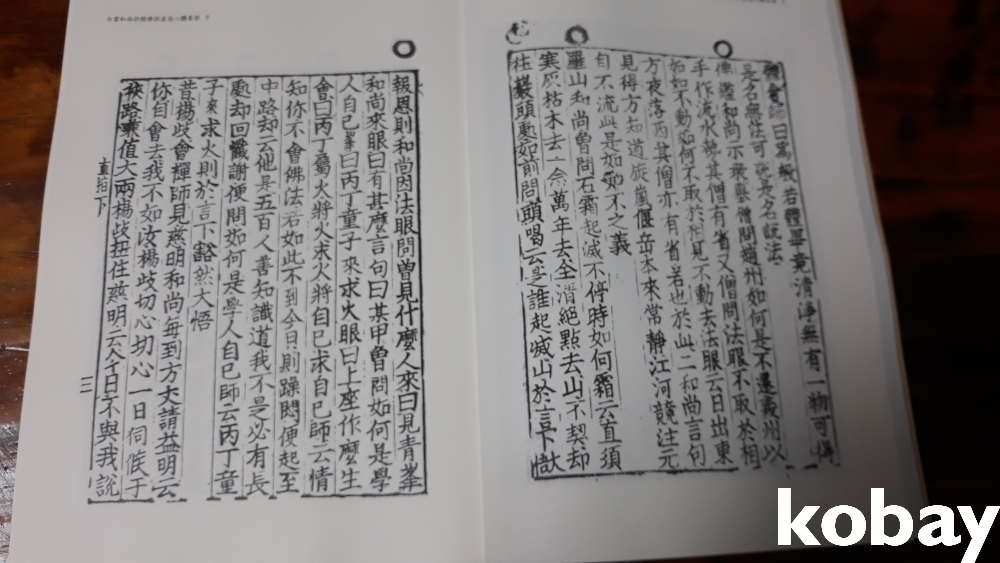 體會師曰爲般若體畢竟清淨無有一物可得
是名無法可說是名說法
佛鑑和尚示衆擧僧問趙州如何是不遷義州以
手作流水勢其僧有省又僧問法眼不取於相
如如不動如何不取於相見不動去法眼云日出東
方夜落西其僧亦有省若也於此二和尚言句
見得方知道旋嵐偃岳本來常靜江河競注元
自不流此是如如不之義
羅山和尚曾問石霜起滅不停時如何霜云直須
寒灰枯木去一念萬年去全淸絕點去山不契却
往巖頭處如前問頭喝云是誰起滅山於言下大
白雲和尚抄錄佛祖直指心體要節 下
報恩則和尚因法眼問曾見什麽人來曰見青峯
和尚來眼曰有甚麽言句曰某甲曾問如何是學
人自己峯曰丙丁童子來求火眼曰上座作麽生
會曰丙丁屬火將火求火將自己求自己師云情
知你不會佛法若如此不到今日則躁悶便起至
中路却云他是五百人善知識道我不是必有長
處却回懺謝便問如何是學人自己師云丙丁童
子來求火則於言下豁然大悟
昔楊歧會禪師見慈明和尚每到方丈請益明云
你自會去我不如汝楊歧切心切心一日伺候于
挾路乘值大雨楊歧扭住慈明云今日不與我說
直指下
三
kobay